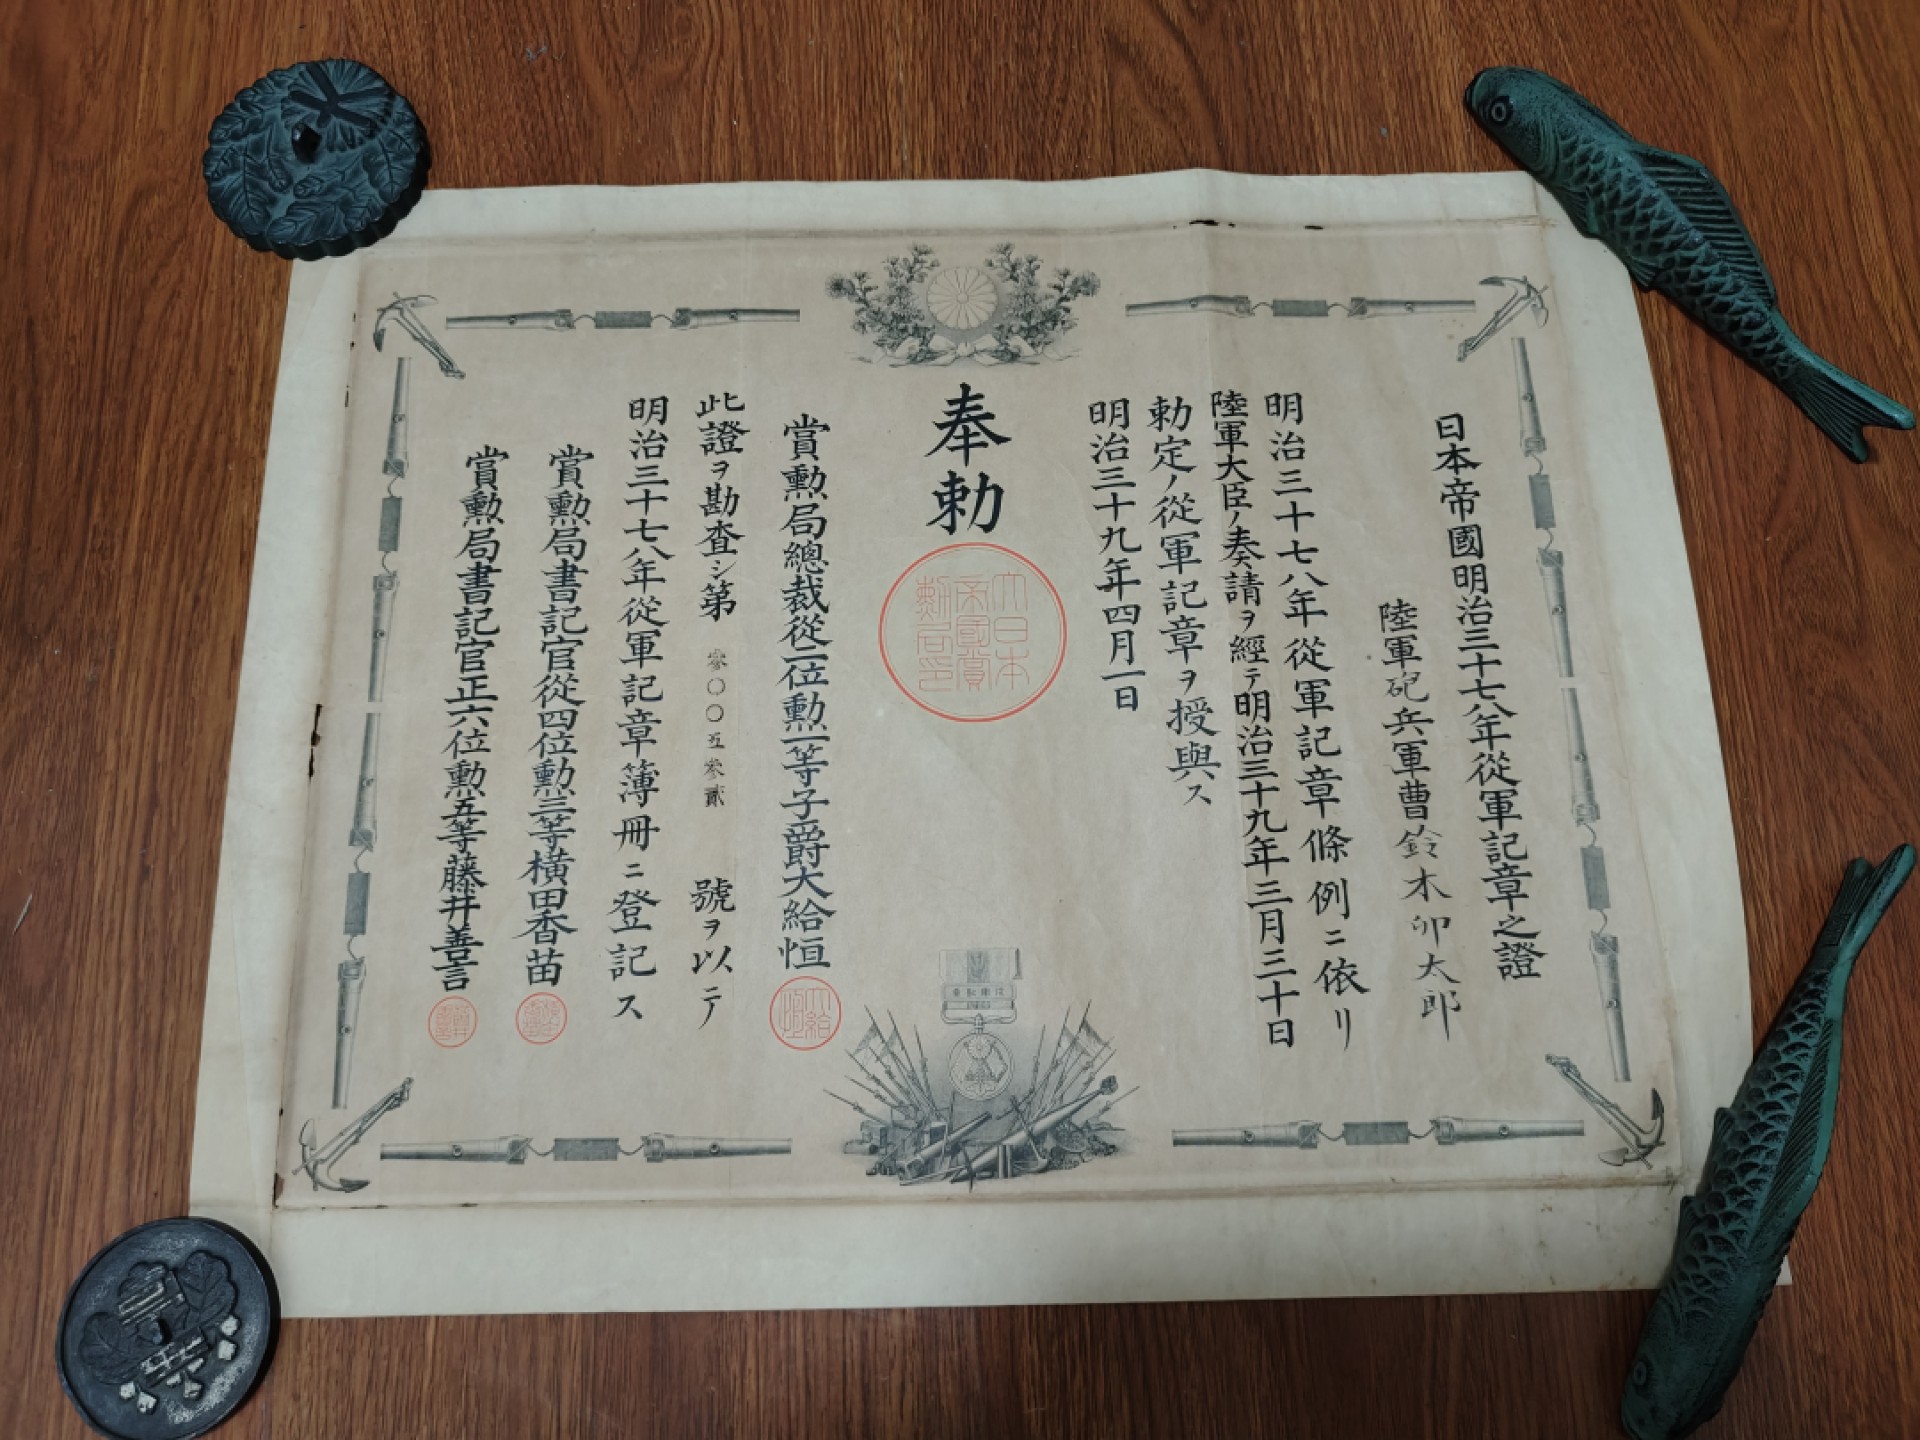 日本帝國明治三十七八年從軍記章之證
陸軍砲兵軍曹鈴木卯太郎
明治三十七八年從軍記章條例ニ依リ
陸軍大臣ノ奏請ヲ經テ明治三十九年三月三十日
勅定ノ從軍記章ヲ授與ス
明治三十九年四月一日
奉勅
大日本帝國賞勲局印
賞勲局總裁從二位勲一等子爵大給恒
此證ヲ勘査シ第零〇〇五参貳號ヲ以テ
明治三十七八年從軍記章簿冊ニ登記ス
賞勲局書記官從四位勲三等橫田香苗
賞勲局書記官正六位勲五等藤井善言